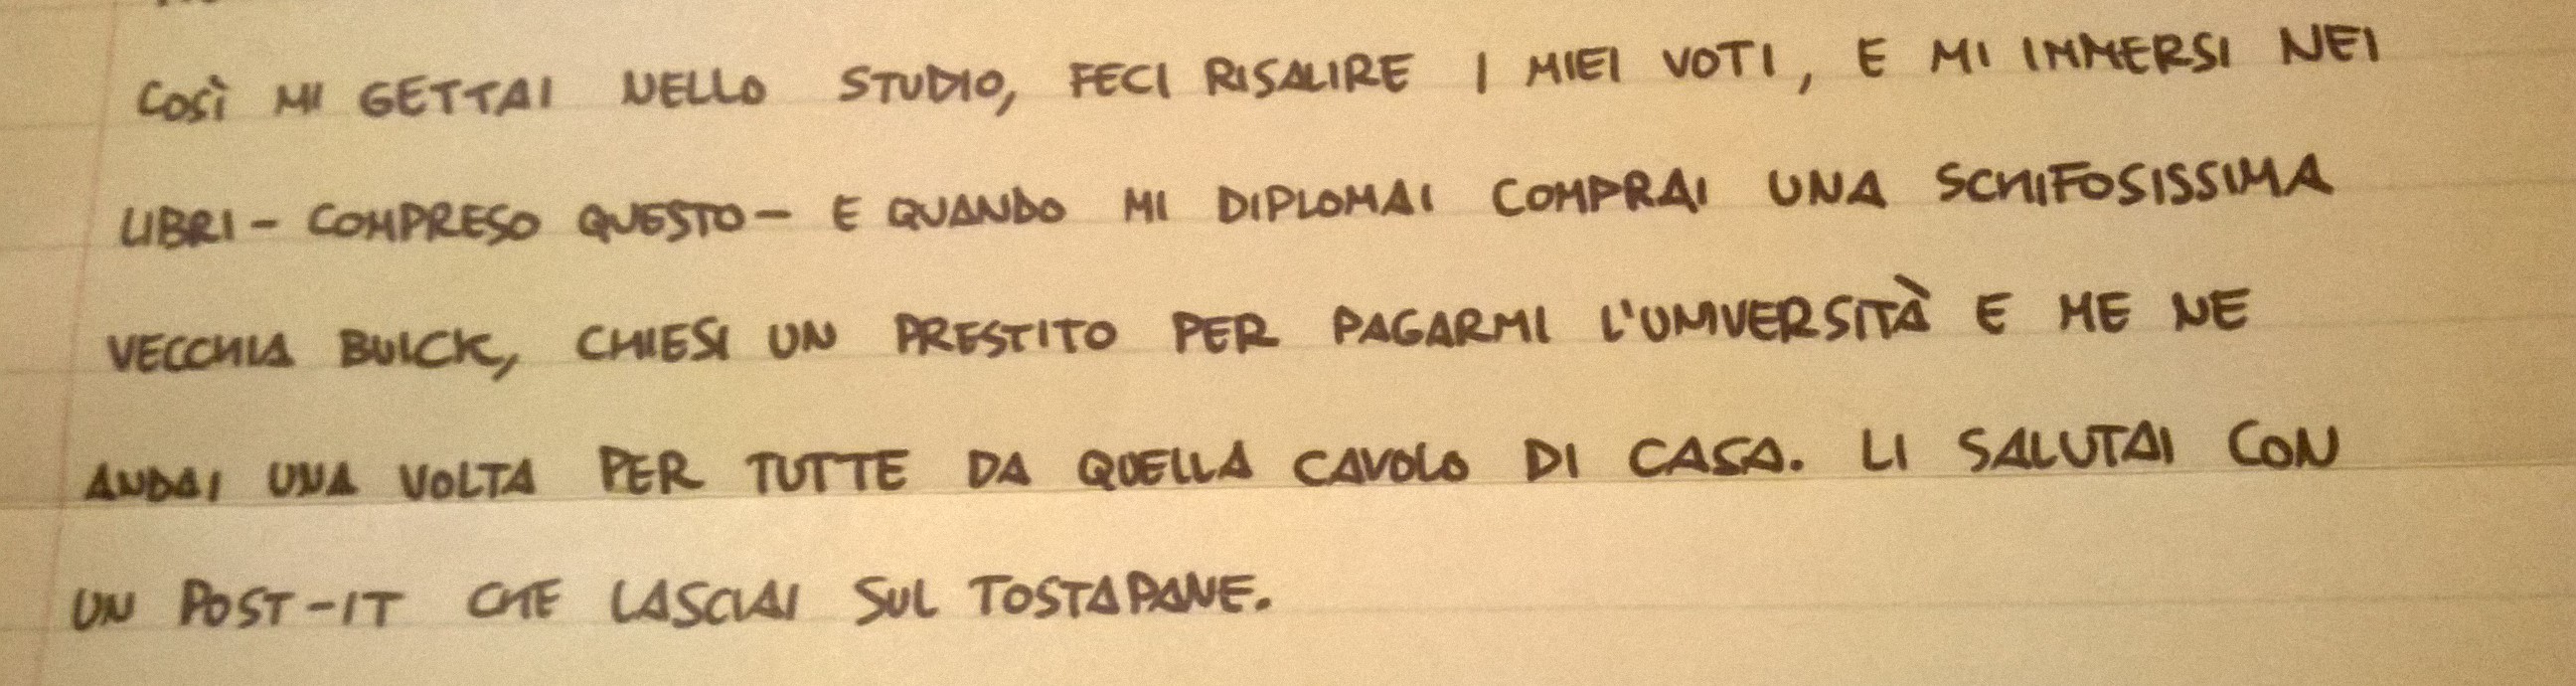 COSÌ MI GETTAI NELLO STUDIO, FECI RISALIRE I MIEI VOTI, E MI IMMERSI NEI
LIBRI - COMPRESO QUESTO - E QUANDO MI DIPLOMAI COMPRAI UNA SCHIFOSISSIMA
VECCHIA BUICK, CHIESI UN PRESTITO PER PAGARMI L'UNIVERSITÀ E ME NE
ANDAI UNA VOLTA PER TUTTE DA QUELLA CAVOLO DI CASA. LI SALUTAI CON
UN POST-IT CHE LASCIAI SUL TOSTAPANE.